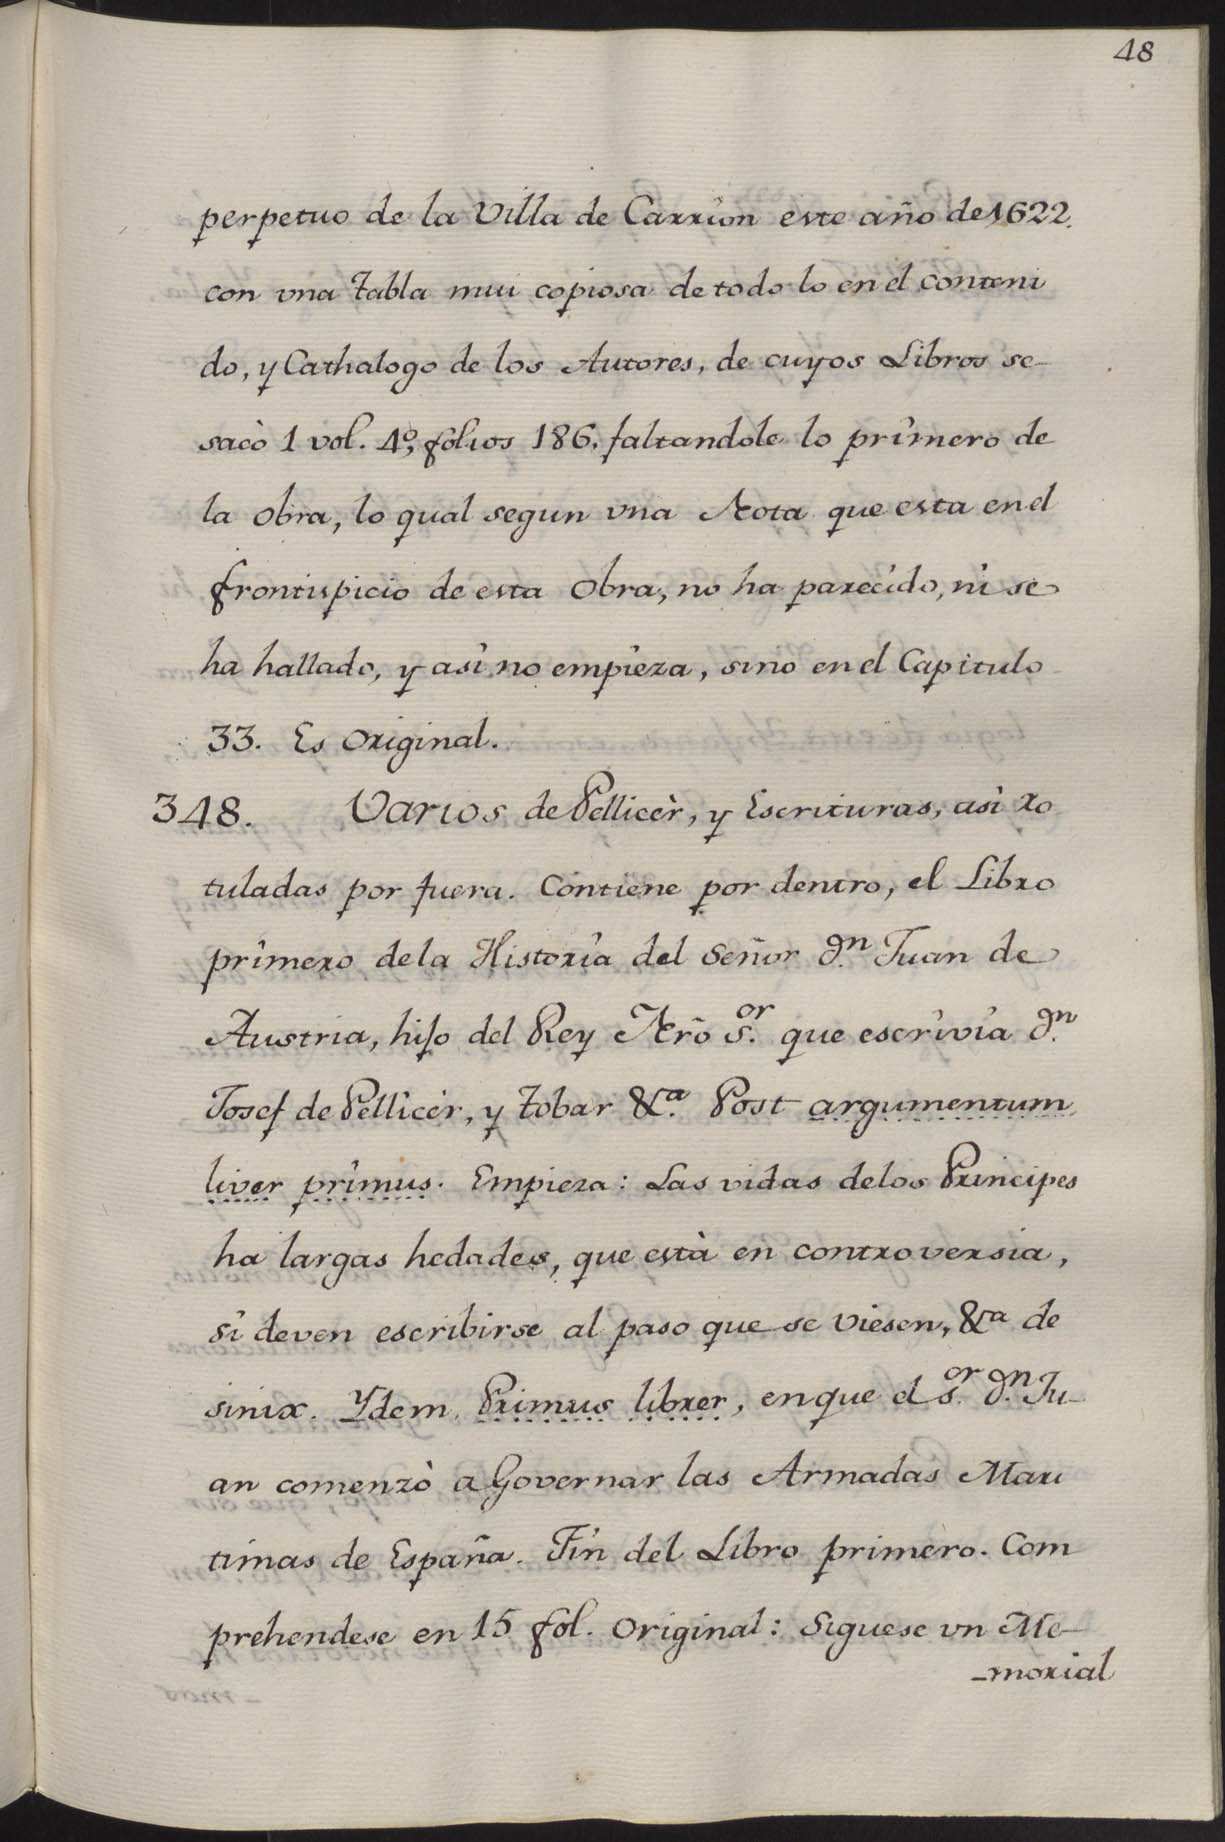 48
perpetuo de la Villa de Carrion este año de 1622.
con vna tabla mui copiosa de todo lo en el conteni
do, y Cathalogo de los Autores, de cuyos Libros se
sacò 1 vol. 4º, folios 186, faltandole lo primero de
la obra, lo qual segun vna Nota que esta en el
frontispicio de esta Obra, no ha parecido, ni se
ha hallado, y asi no empieza, sino en el Capitulo
33. Es Original.
348. Varios de Pellicèr, y Escrituras, asi ro
tuladas por fuera. Contiene por dentro, el Libro
primero de la Historia del Señor Dn. Juan de
Austria, hijo del Rey Nrõ Sor. que escrivia Dn.
Josef de Pellicèr, y tobar &a. Post argumentum
liver primus. Empieza: Las vidas de los Principes
ha largas hedades, que està en controversia,
si deven escribirse al paso que se viesen, &a de
sinix. Ydem. Primus librer, en que el Sor. Dn. Ju-
an comenzò a Governar las Armadas Mari
timas de España. Fin del Libro primero. Com
prehendese en 15 fol. Original: Siguese vn Me-
-morial